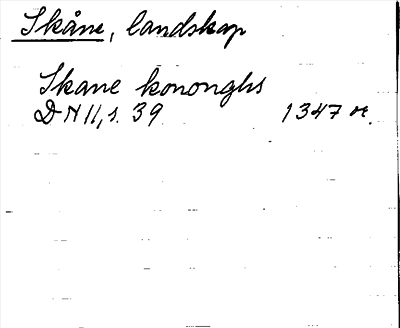 Skåne, landskap
Skane kononghs
DN II, s. 39 1347 or.